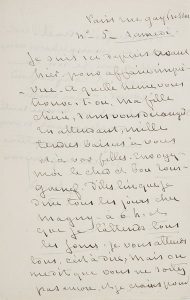 Paris rue gay Lussac
n° 5 Samedi
Je suis ici depuis avant
hier, pour affaire imprévue
à quelle heure vous
trouve-t-on, ma fille
chérie, sans vous déranger
En attendant, mille
tendres baisers à vous
et à vos filles. Envoyez
moi le cher et bon
dites lui que je
dîne tous les jours chez
Magny à 6 h. et
que je l'attends tous
les jours. je vous attends
tous, c'est à dire, mais on
me dit que vous ne sortez
pas encore. et je crains pour